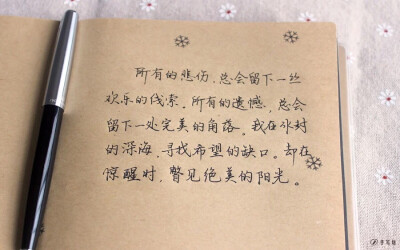 所有的悲伤，总会留下一丝
欢乐的线索。所有的遗憾，总会
留下一处完美的角落。我在冰封
的深海，寻找希望的缺口。却在
惊醒时，瞥见绝美的阳光。
手写族